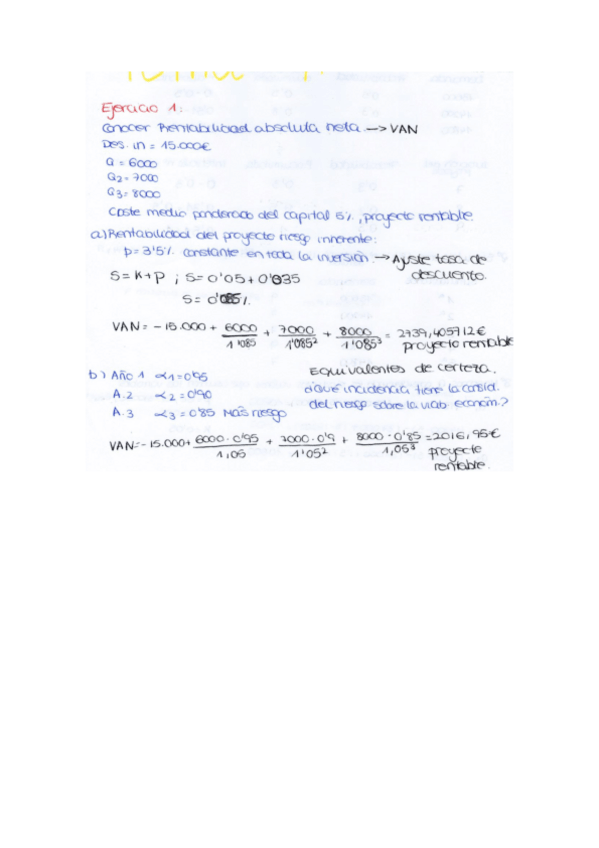 Ejercicio 1:
Conocer Rentabilidad absoluta neta → VAN
Des. in = 15.000€
Q = 6000
Q2 = 7000
Q3 = 8000
Coste medio ponderado del capital 5%, proyecto rentable
a) Rentabilidad del proyecto riesgo inherente:
p = 3'5% constante en toda la inversión. → Ajuste tasa de descuento.
S = K + P ; S = 0'05 + 0'035
S = 0'085%
VAN = - 15.000 + 6000/1'085 + 7000/1'085² + 8000/1'085³ = 2739,405712€
proyecto rentable
Equivalentes de certeza.
b) Año 1 α1 = 0'95
A.2 α2 = 0'90
A.3 α3 = 0'85 Más riesgo
¿Qué incidencia tiene la consid.
del riesgo sobre la viab. económ.?
VAN = - 15.000 + 6000 · 0'95/1,05 + 7000 · 0'9/1'05² + 8000 · 0'85/1,05³ = 2016,95€
proyecto
rentable.